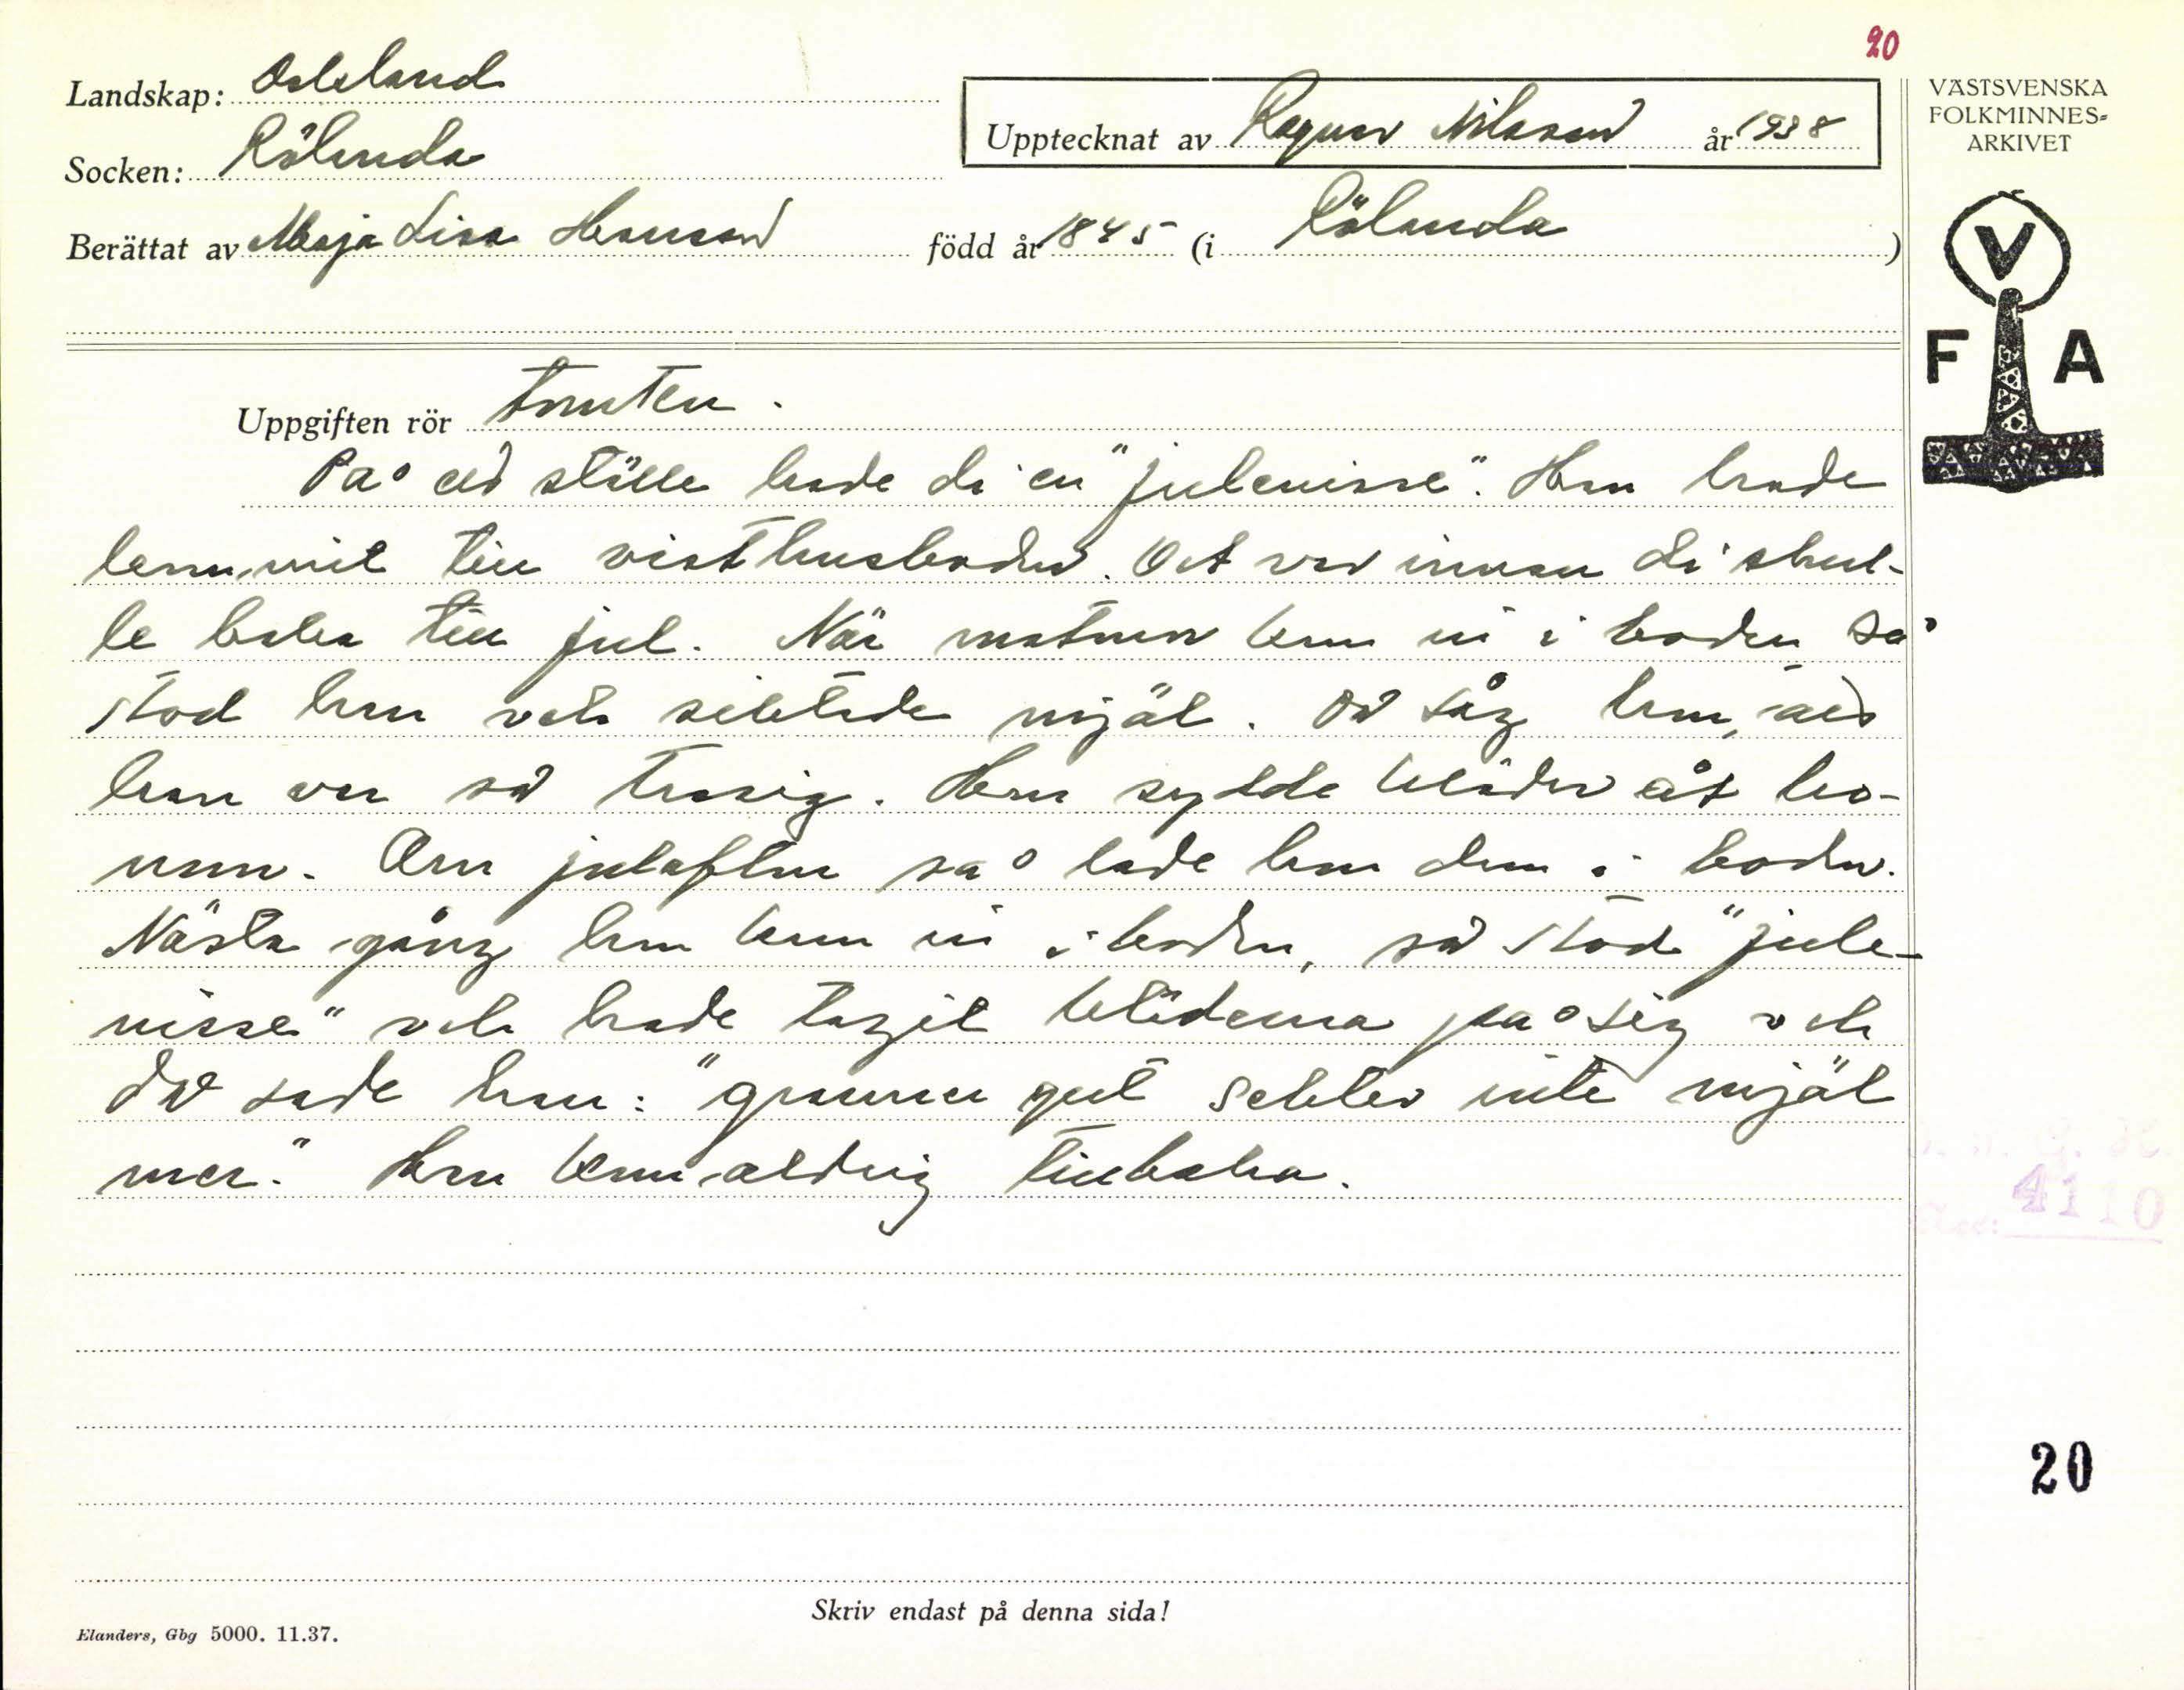 20
Landskap: Dalsland
Socken: Rölanda
Upptecknat av Ragnar Nilsson år 1938
Berättat av Maja Lisa Hansson född år 1845 (i Rölanda)
VÄSTSVENSKA
FOLKMINNES-
ARKIVET
V
F A
Uppgiften rör tomten.
På ett ställe hade di en "julenisse". Han hade
kommit till visthusboden. Det var innan di skul-
le baka till jul. När matmor kom in i boden så
stod han och siktade mjöl. Då såg hon, att
han var så trasig. Hon sydde kläder åt ho-
nom. Om julafton så lade hon dem i boden.
Nästa gång hon kom in i boden, så stod "jule-
nisse" och hade tagit kläderna på sig och
då sade han: "granner gut sekter inte mjöl
mer." Han kom aldrig tillbaka.
4110
20
Skriv endast på denna sida!
Elanders, Gbg 5000. 11.37.